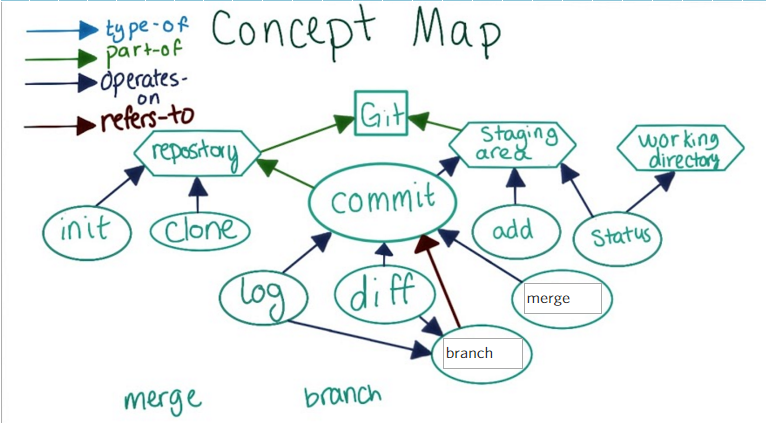 type-of
Concept Map
part-of
operates-
on
refers-to
Git
repository
Staging
area
working
directory
commit
init
clone
add
Status
log
diff
merge
branch
merge
branch